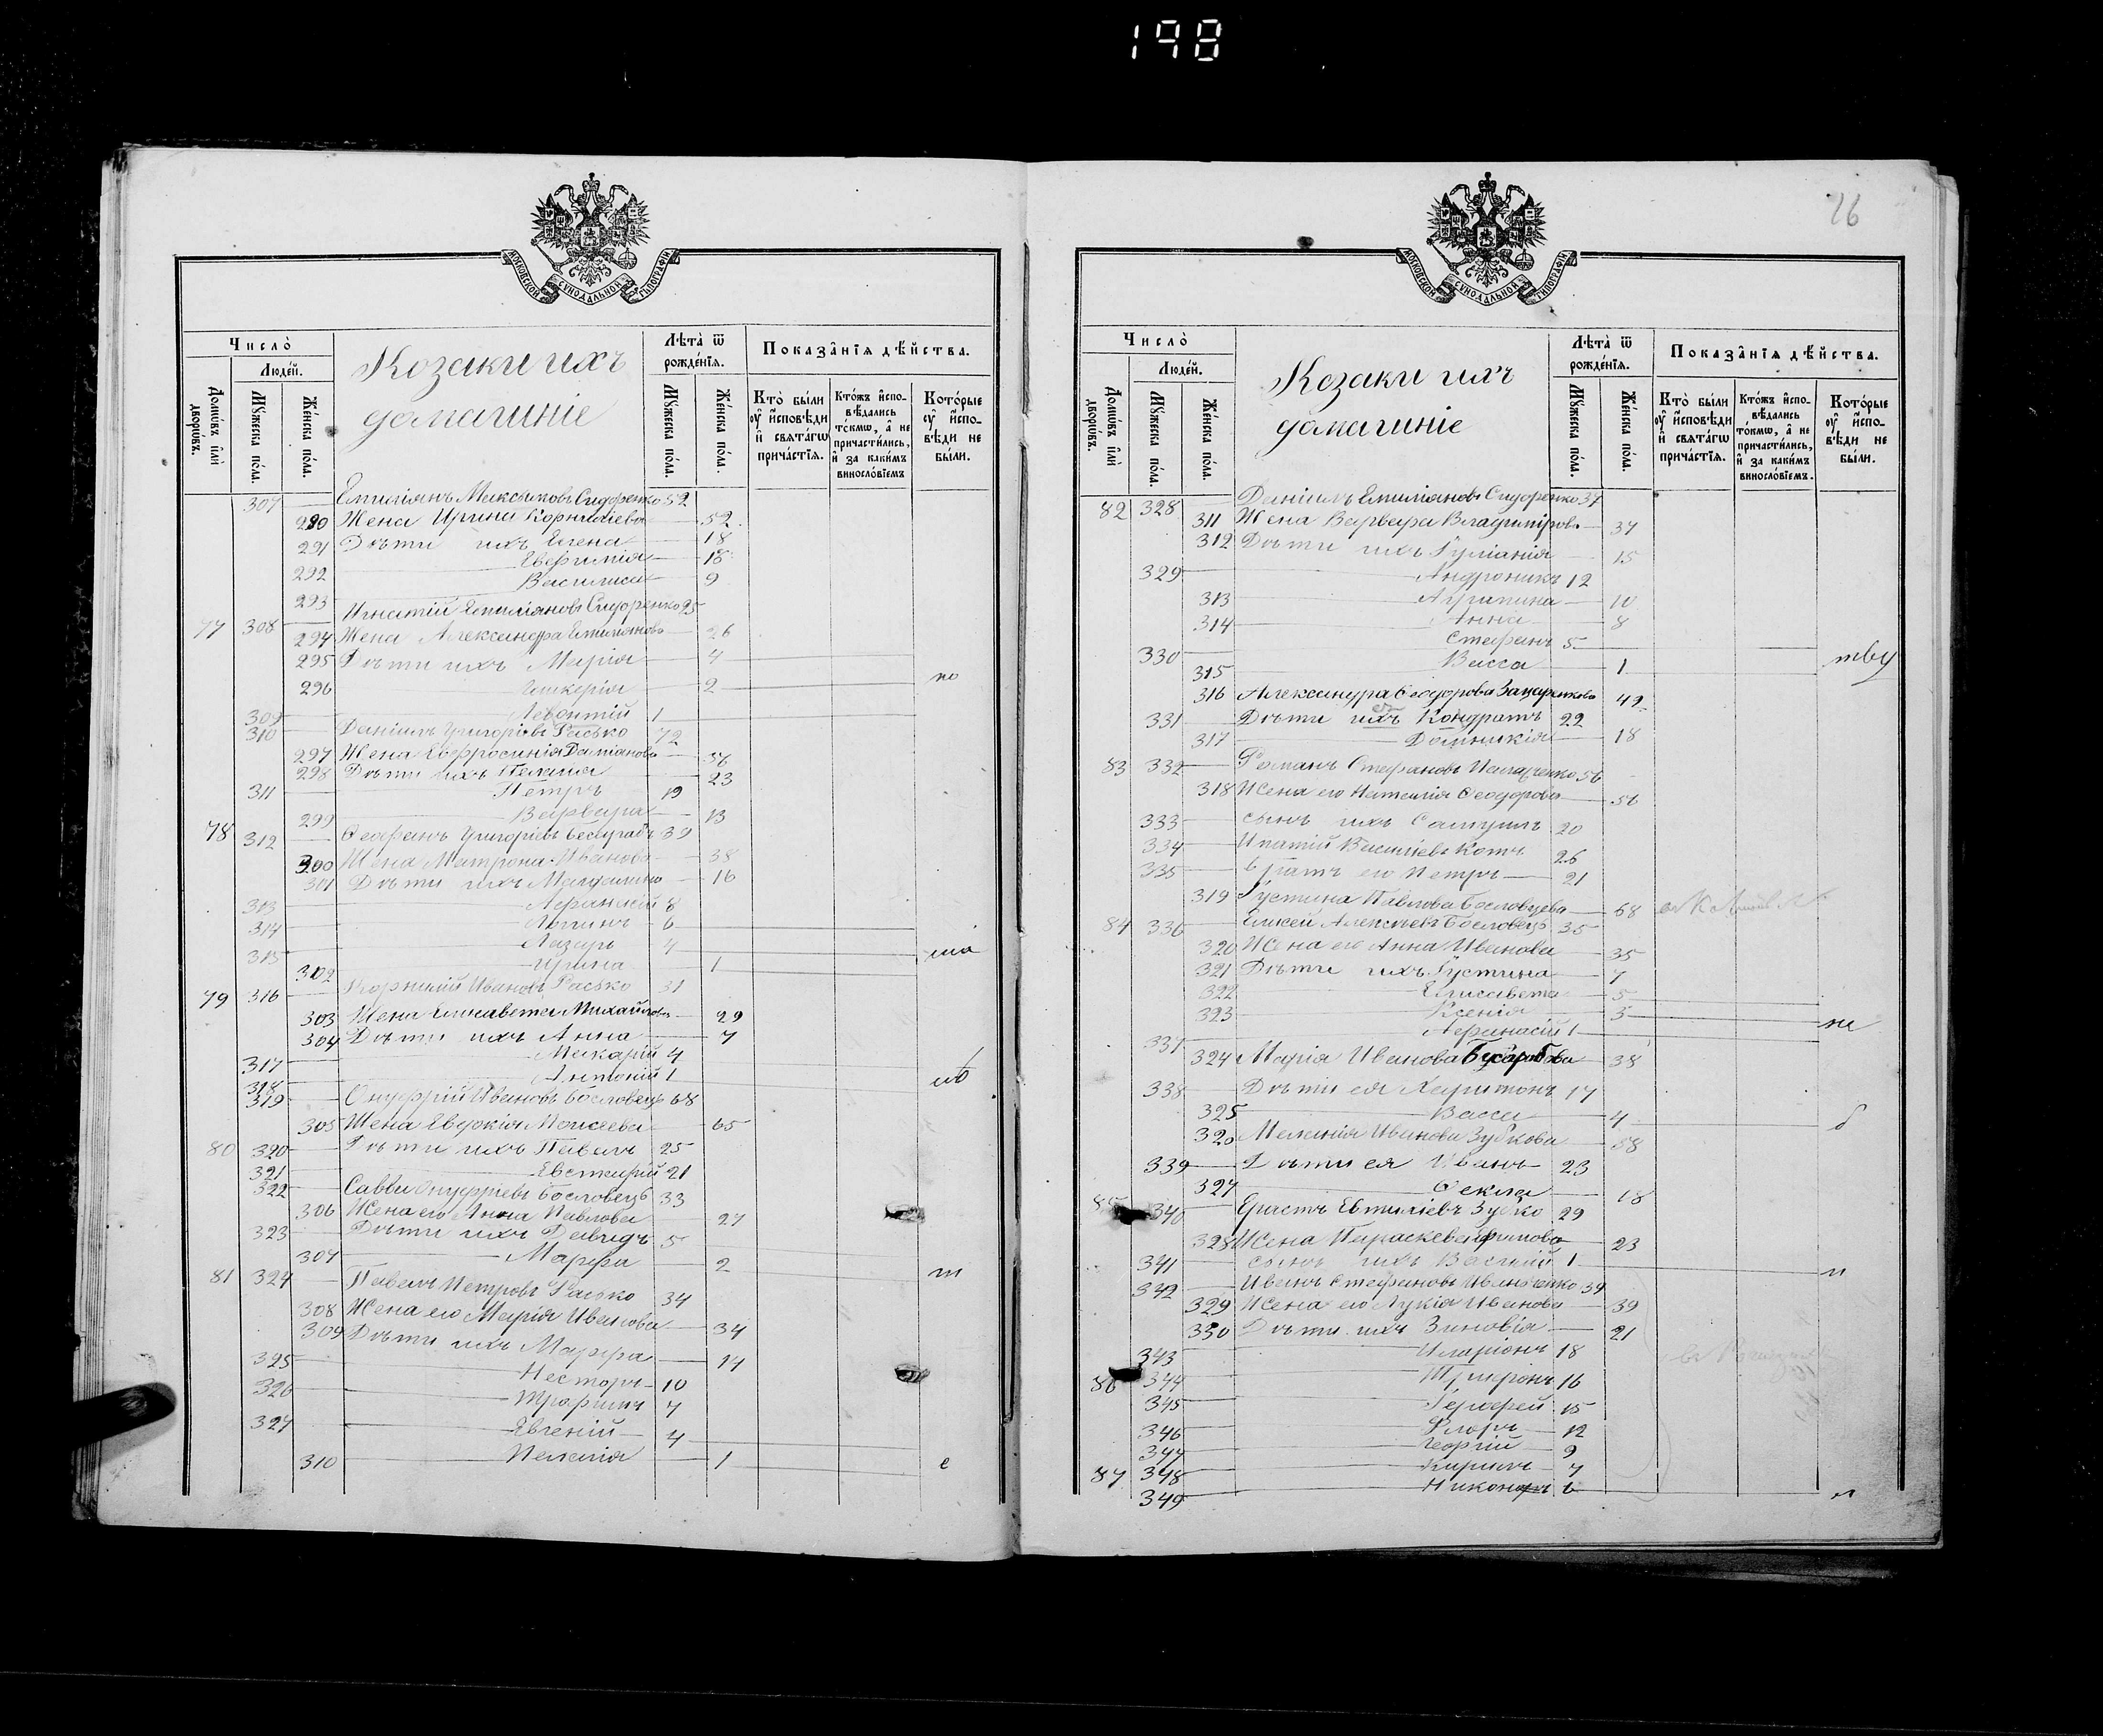 198
МОСКОВСКОЙ СѴНОДАЛЬНОЙ ТѴПОГРАФІИ
Число̀
Людéй.
Домѡ́въ и҆лѝ дворѡ́въ.
Мꙋ́жеска по́ла.
Же́нска по́ла.
Козаки ихъ
домашніе
Лѣ́та ѿ рожде́нїѧ.
Мꙋ́жеска по́ла.
Же́нска по́ла.
Показа̑нїѧ дѣ́йства.
Кто̀ бы́ли ᲂу҆ и҆́сповѣди и҆ свѧта́гѡ прича́стїѧ.
Кто́жъ и҆спо-вѣ́дались то́кмѡ, а҆ не причасти́лись, и҆ за каки́мъ винословїемъ
Кото́рые ᲂу҆ и҆́спо-вѣди не бы́ли.
307 Емиліянъ Максимовъ Сидоренко 52
290 Жена Ирина Корниліева 52
291 Дѣти ихъ Елена 18
292 Евфимія 18
293 Василиса 9
77 308 Игнатій Емиліяновъ Сидоренко 25
294 Жена Александра Емиліянова 26
295 Дѣти ихъ Марія 4
296 Гликерія 2 по
309 Леонтій 1
310 Даніилъ Григоріевъ Расько 72
297 Жена Евфросинія Даміанова 56
298 Дѣти ихъ Пелагія 23
311 Петръ 19
299 Варвара 13
78 312 Григоріевъ 39
300 Жена Матрона Иванова 38
301 Дѣти ихъ Магдалина 16
313 Афанасій 8
314 Логинъ 6
315 Лазарь 4
302 Ирина 1
79 316 Корнилій Ивановъ Расько 31
303 Жена Елисавета Михайлова 29
304 Дѣти ихъ Анна 7
317 Макарій 4
318 Антоній 1
319 Онуфрій Ивановъ Бословецъ 68
305 Жена Евдокія Моисеева 65
80 320 Дѣти ихъ Павелъ 25
321 Евстафій 21
322 Савва Онуфріевъ Бословецъ 33
306 Жена его Анна Павлова 27
323 Дѣти ихъ Давидъ 5
307 Марфа 2 т
81 324 Павелъ Петровъ Расько 34
308 Жена его Марія Иванова 34
309 Дѣти ихъ Марфа 14
325 Несторъ 10
326 Трофимъ 7
327 Евгеній 4
310 Пелагія 1 е
МОСКОВСКОЙ СѴНОДАЛЬНОЙ ТѴПОГРАФІИ
Число̀
Людéй.
Домѡ́въ и҆лѝ дворѡ́въ.
Мꙋ́жеска по́ла.
Же́нска по́ла.
Козаки ихъ
домашніе
Лѣ́та ѿ рожде́нїѧ.
Мꙋ́жеска по́ла.
Же́нска по́ла.
Показа̑нїѧ дѣ́йства.
Кто̀ бы́ли ᲂу҆ и҆́сповѣди и҆ свѧта́гѡ прича́стїѧ.
Кто́жъ и҆спо-вѣ́дались то́кмѡ, а҆ не причасти́лись, и҆ за каки́мъ винословїемъ.
Кото́рые ᲂу҆ и҆́спо-вѣди не бы́ли.
82 328 Даніилъ Емиліяновъ Сидоренко 37
311 Жена Варвара Владимірова 37
312 Дѣти ихъ Іуліанія 15
329 Андроникъ 12
313 Агрипина 10
314 Анна 8
330 Стефанъ 5
315 Васса 1 тву
316 Александра Феодорова Захаренкова 42
331 Дѣти Кондратъ 22
317 Домникія 18
83 332 Романъ Стефановъ 56
318 Жена его Наталія Феодорова 56
333 сынъ ихъ Самуилъ 20
334 Игнатій Василіевъ Котъ 26
335 Братъ его Петръ 21
319 Іустина Павлова Бословцева 68
84 336 Елисей Алексѣевъ Бословецъ 35
320 Жена его Анна Иванова 35
321 Дѣти ихъ Іустина 7
322 Елисавета 5
323 Ксенія 3
337 Афанасій 1
324 Марія Иванова 38
338 Дѣти ея Харитонъ 17
325 Васса 4 б
326 Меланія Иванова Зубкова 58
339 Дѣти ея Иванъ 23
327 Фекла 18
85 340 Ерастъ Евтихіевъ Зубко 29
328 Жена Параскева 23
341 сынъ ихъ Василій 1
342 Иванъ Стефановъ Иваненко 39
329 Жена его Лукія Иванова 39
330 Дѣти ихъ Зиновія 21
343 Иларіонъ 18
86 344 Трифонъ 16
345 15
346 Флоръ 12
347 Георгій 9
87 348 Кирилъ 7
349 Никоноръ 6